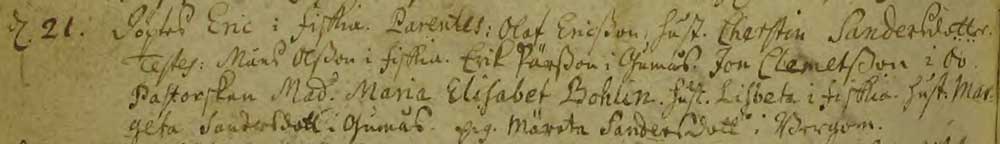 d. 21. Döptes Eric i Fiskia. Parentes: Olof Ericsson, hust. Cherstin Sandersdotter.
Testes: Måns Olsson i Fiskia. Erik Pärsson i Gumås. Jon Clemetsson i Öö.
Pastorskan Mad. Maria Elisabet Bohlin. hust. Lisbeta i Fiskia. hust. Mar-
geta Sandersdott. i Gumås. pig. Märeta Sandersdott. i Bergom.